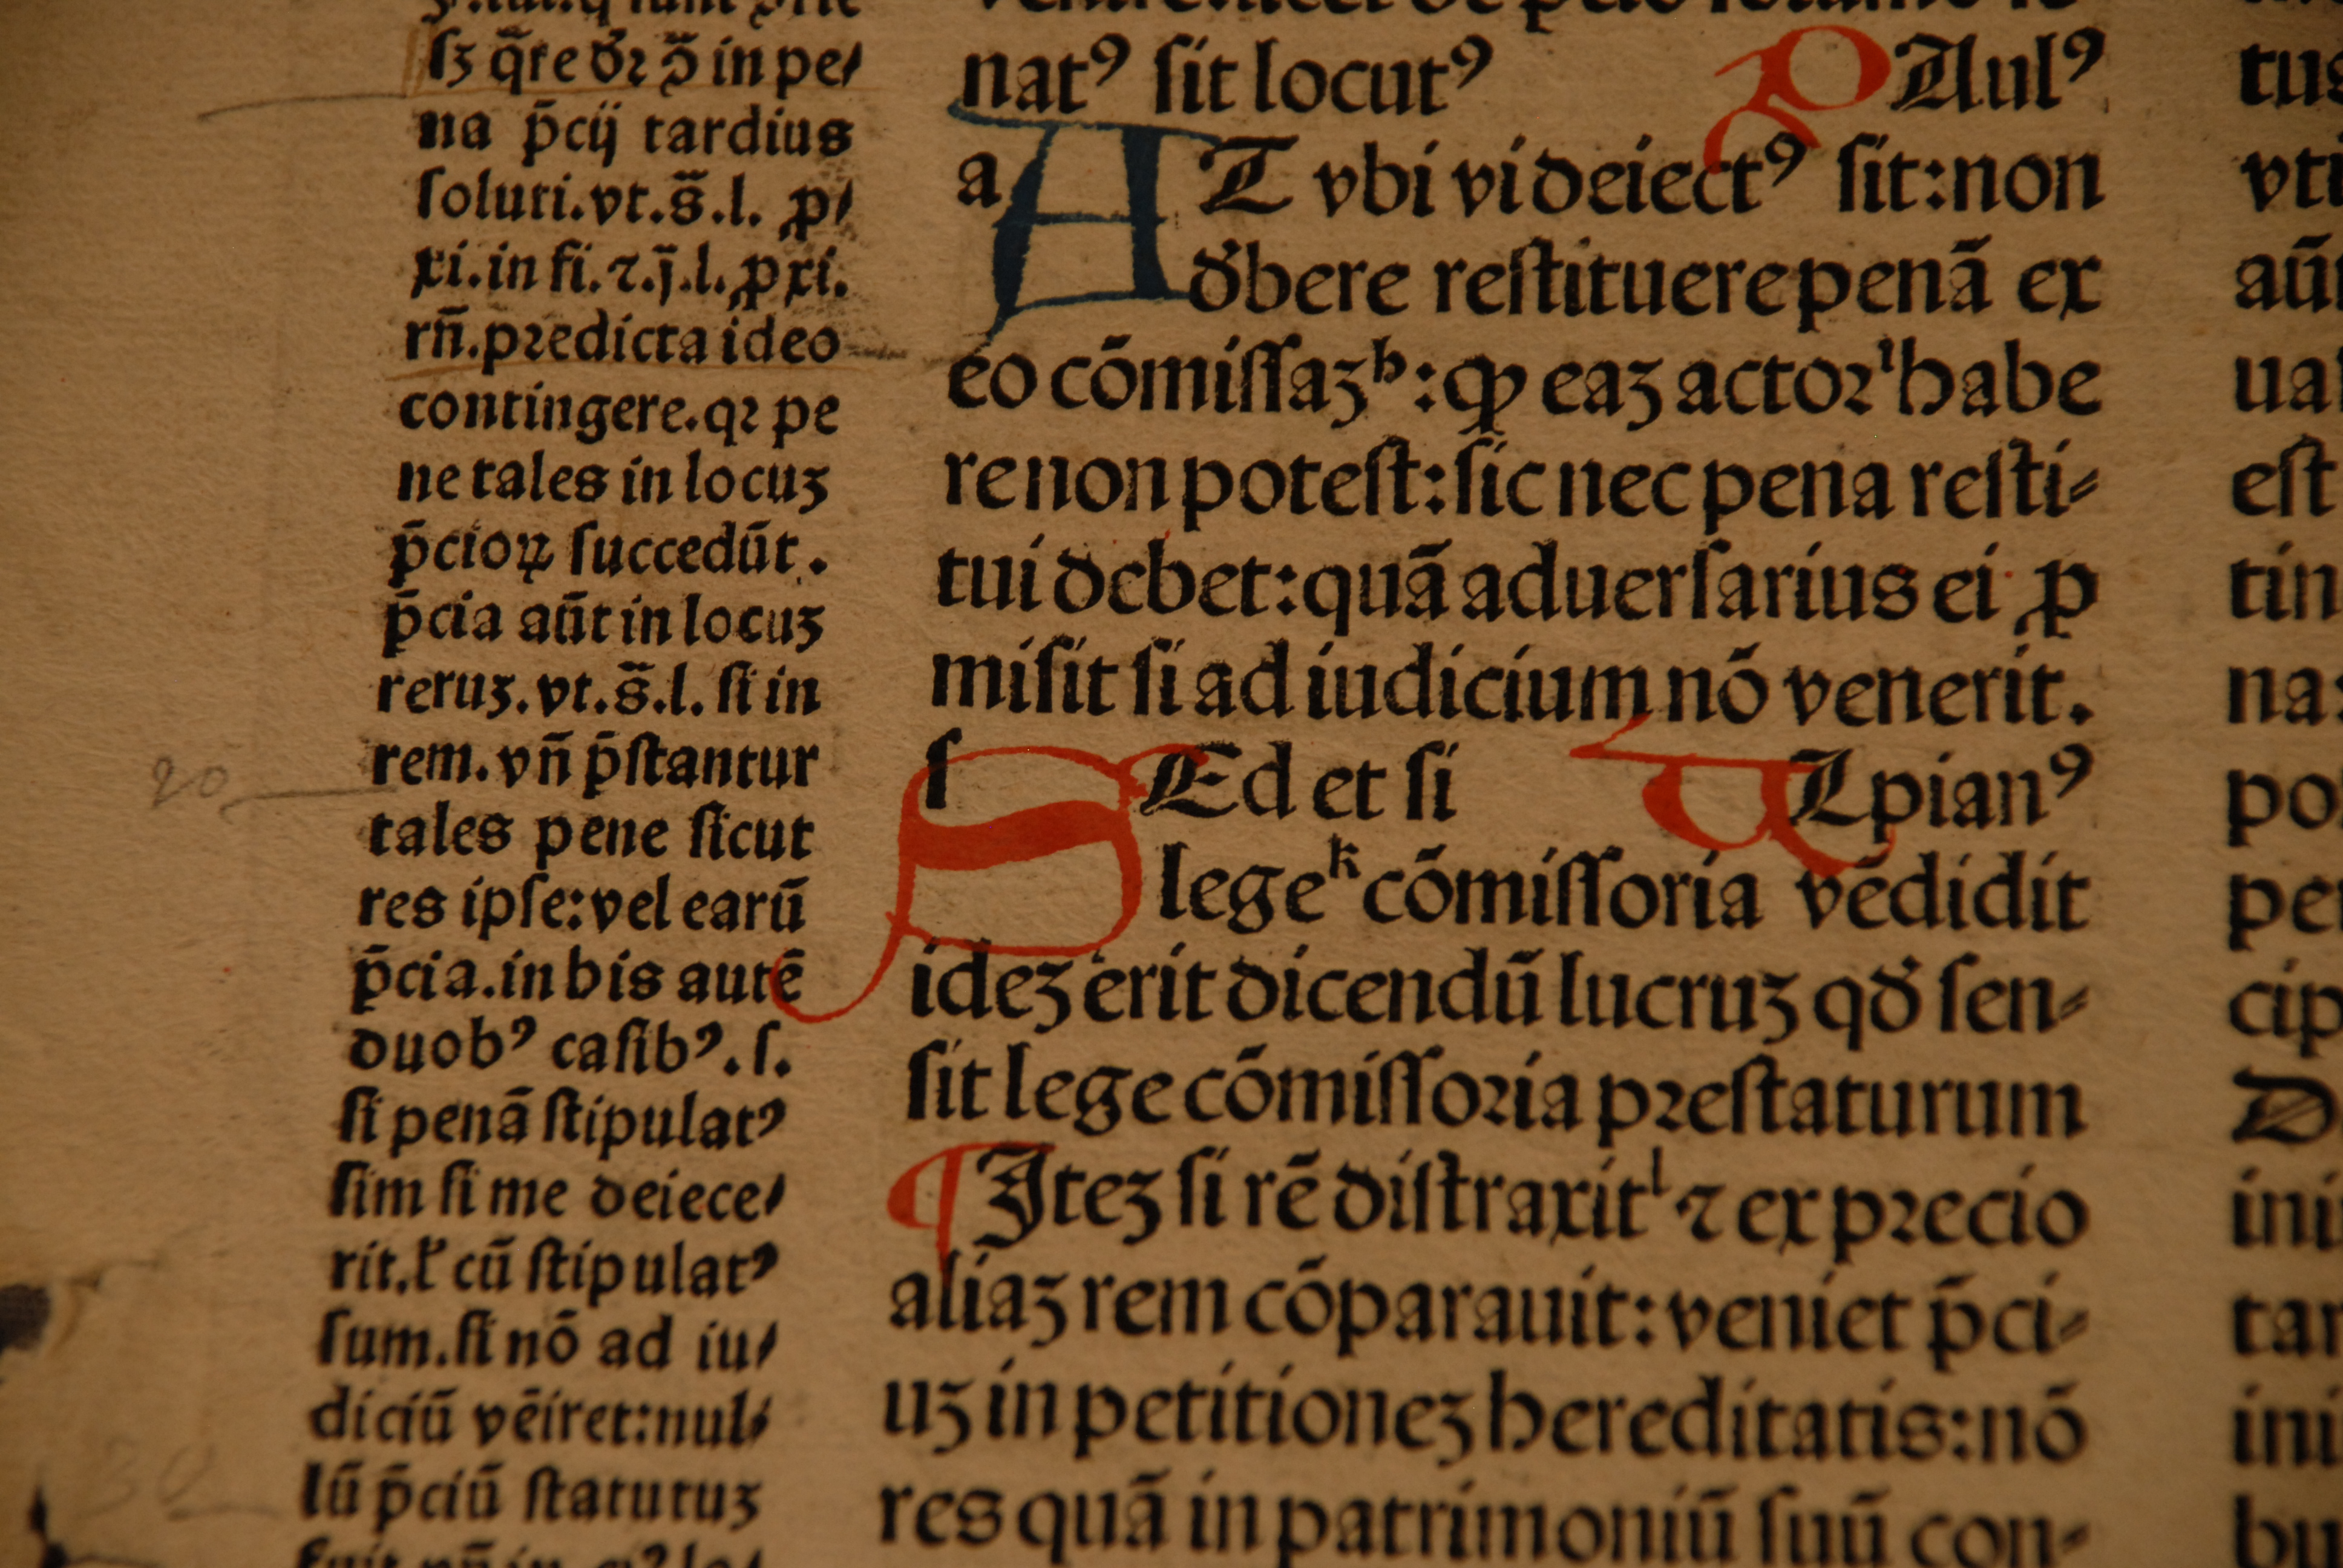 ſꝫ q̃re d̛ꝛ ꝓ̃ in pe/
na p̄cij tardius
ſoluti.vt.s̃.l. ꝓ/
xi.in fi.⁊.j̄.l.ꝓxi.
rn̄.pꝛedicta ideo
contingere.qꝛ pe
ne tales in locuꝫ
p̄cioꝝ ſuccedūt.
p̄cia aūt in locuꝫ
reruꝫ.vt.s̃.l. ſi in
rem.vn̄ p̄ſtantur
tales pene ſicut
res ipſe:vel earū
p̄cia.in his autē
duobꝰ caſibꝰ.ſ.
ſi penā ſtipulatꝰ
ſim ſi me deiece/
rit.ł cū ſtipulatꝰ
ſum.ſi nō ad iu/
diciū vēiret:nul/
lū p̄ciū ſtaturuꝫ
natꝰ ſit locutꝰ PAulꝰ
a AT vbi vi deiectꝰ ſit:non
d̛bere reſtituere penā ex
eo cōmiſſaꝫʰ:ꝙ eaꝫ actoꝛⁱ habe
re non poteſt:ſic nec pena reſti⸗
tui debet:quā aduerſarius ei ꝓ
miſit ſi ad iudicium nō venerit.
ſ SEd et ſi VLpianꝰ
legeᵏ cōmiſſoria vēdidit
ideꝫ erit dicendū lucruꝫ qd̛ ſen⸗
ſit lege cōmiſſoꝛia pꝛeſtaturum
¶ Iteꝫ ſi rē diſtraxitˡ ⁊ ex pꝛecio
aliaꝫ rem cōparauit:veniet p̄ci⸗
uꝫ in petitioneꝫ hereditatis:nō
res quā in patrimoniū ſuū con⸗
tus
vti
aū
ua
eſt
tin
na:
po
pet
cip
D
ini
tar
ini
bu